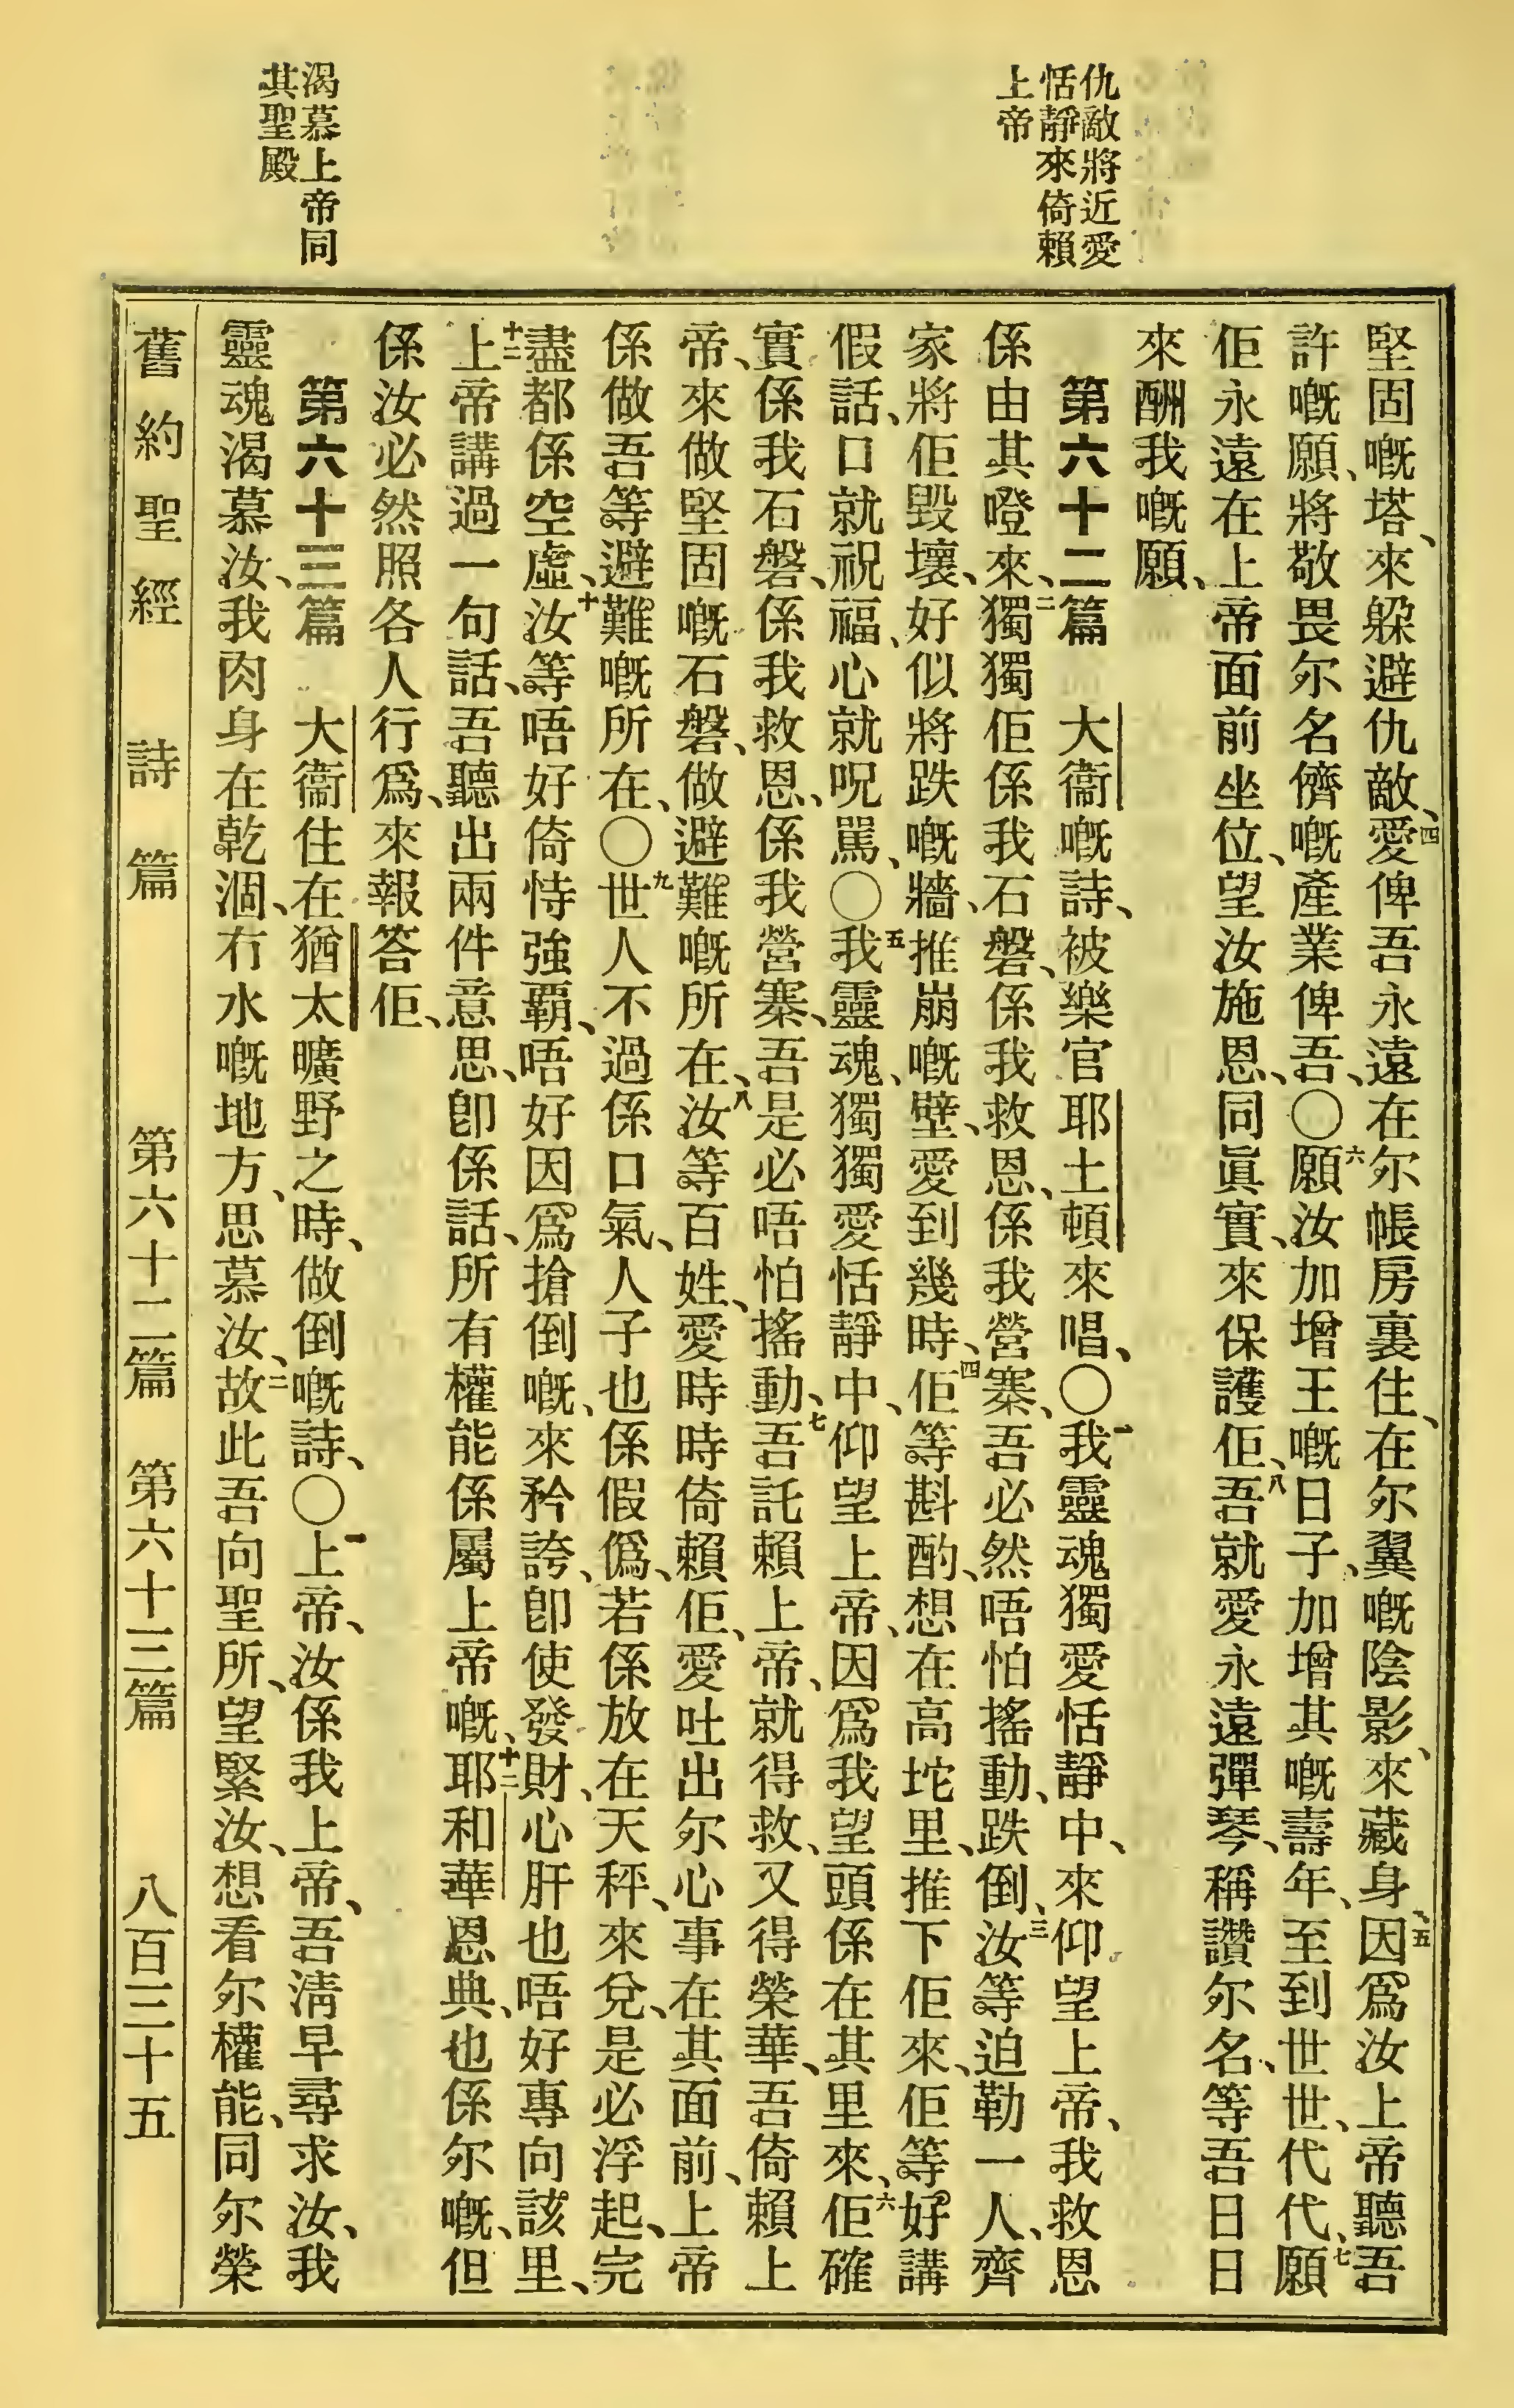 仇敵將近愛
恬靜來倚賴
上帝
渴慕上帝同
其聖殿
堅固嘅塔、來躱避仇敵、四愛俾吾永遠在尔帳房裏住、在尔翼嘅陰影、來藏身、五因爲汝上帝聽吾
許嘅願、將敬畏尔名儕嘅產業俾吾、〇六願汝加增王嘅日子、加增其嘅壽年、至到世世、代代、七願
佢永遠在上帝面前坐位、望汝施恩、同眞實、來保護佢、八吾就愛永遠彈琴、稱讚尔名、等吾日日
來酬我嘅願、
第六十二篇 大衞嘅詩、被樂官耶土頓來唱、〇一我靈魂獨愛恬靜中、來仰望上帝、我救恩
係由其噔來、二獨獨佢係我石磐、係我救恩、係我營寨、吾必然唔怕搖動、跌倒、三汝等迫勒一人、齊
家將佢毀壞、好似將跌嘅牆、推崩嘅壁、愛到幾時、四佢等斟酌、想在高坨里、推下佢來、佢等好講
假話、口就祝福、心就呪駡、〇五我靈魂、獨獨愛恬靜中、仰望上帝、因爲我望頭係在其里來、六佢確
實係我石磐、係我救恩、係我營寨、吾是必唔怕搖動、七吾託賴上帝、就得救、又得榮華、吾倚賴上
帝、來做堅固嘅石磐、做避難嘅所在、八汝等百姓、愛時時倚賴佢、愛吐出尔心事在其面前、上帝
係做吾等避難嘅所在、〇九世人不過係口氣、人子也係假僞、若係放在天秤、來兌、是必浮起、完
盡都係空虛、十汝等唔好倚恃強覇、唔好因爲搶倒嘅、來矜誇、卽使發財、心肝也唔好專向該里、
十一上帝講過一句話、吾聽出兩件意思、卽係話、所有權能係屬上帝嘅、十二耶和華恩典、也係尔嘅、但
係汝必然照各人行爲、來報答佢、
第六十三篇 大衞住在猶太曠野之時、做倒嘅詩、〇一上帝、汝係我上帝、吾淸早尋求汝、我
靈魂渴慕汝、我肉身在乾涸、冇水嘅地方、思慕汝、二故此吾向聖所、望緊汝、想看尔權能、同尔榮
舊約聖經 詩篇 第六十二篇 第六十三篇 八百三十五